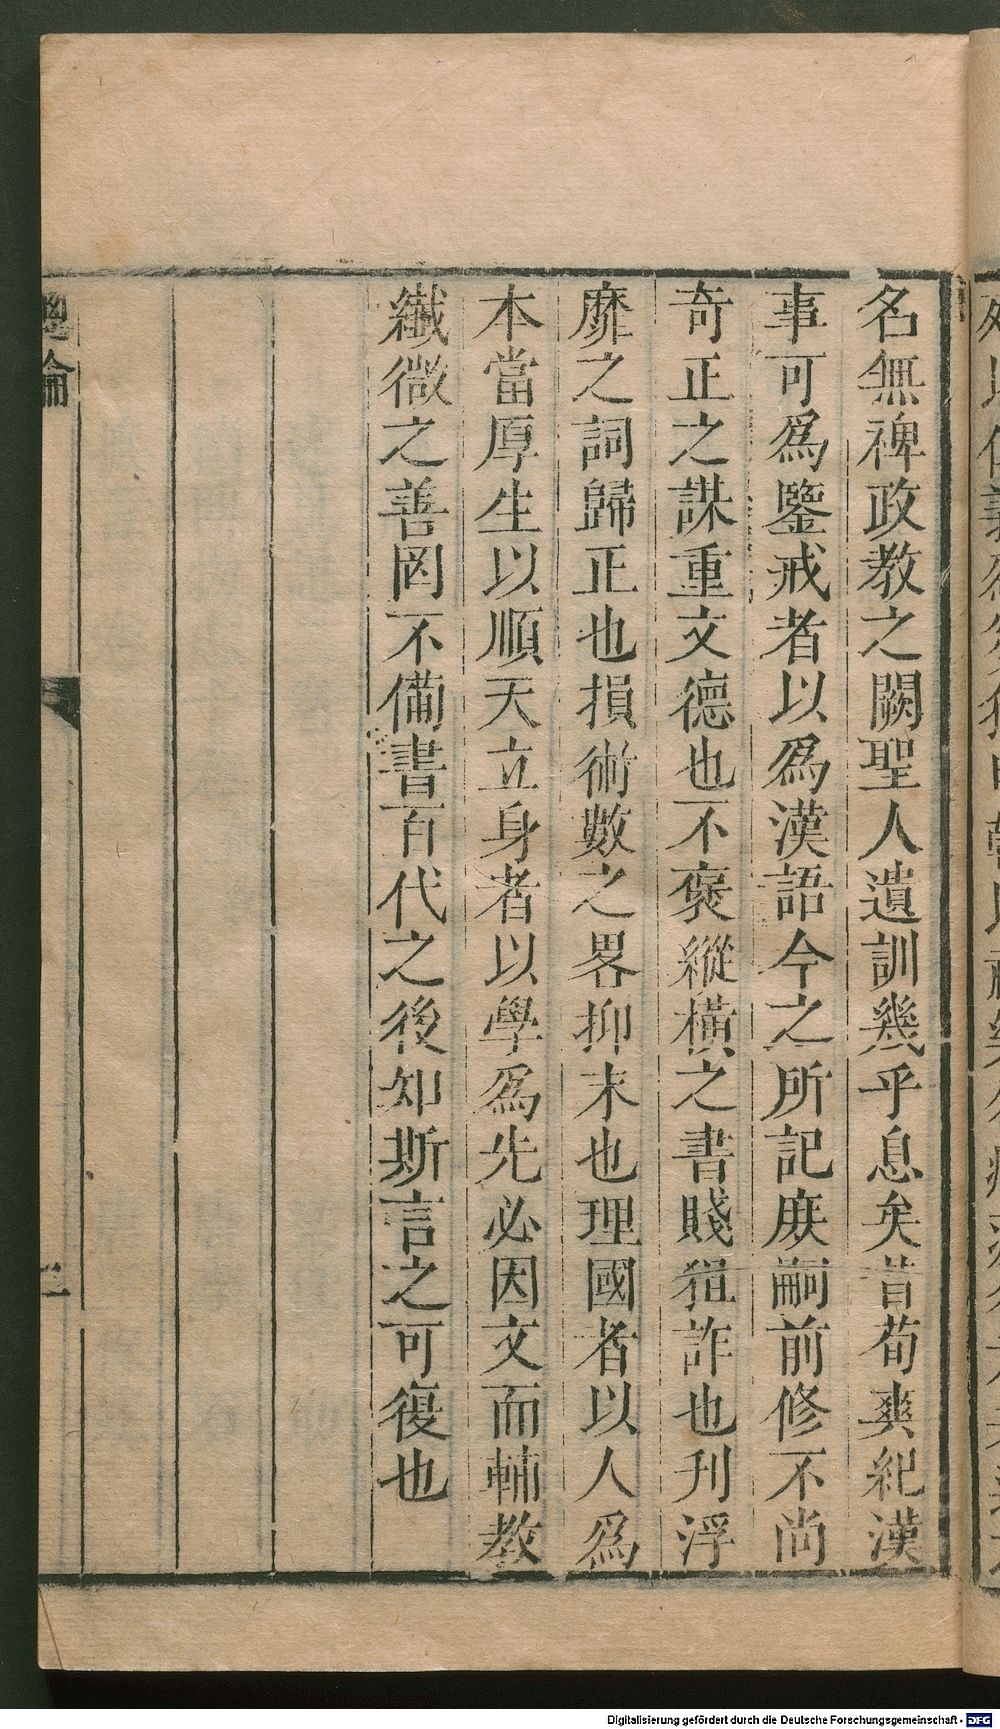 名無裨政教之闕聖人遺訓幾乎息矣昔荀爽紀漢
事可爲鑒戒者以爲漢語今之所記庻嗣前修不尚
奇正之謀重文德也不褒縱横之書賤狙詐也刋浮
靡之詞歸正也損術數之畧抑末也理國者以人爲
本當厚生以順天立身者以學爲先必因文而輔教
纎微之善罔不備書百代之後知斯言之可復也
總論
二
Digitalisierung gefördert durch die Deutsche Forschungsgemeinschaft - DFG